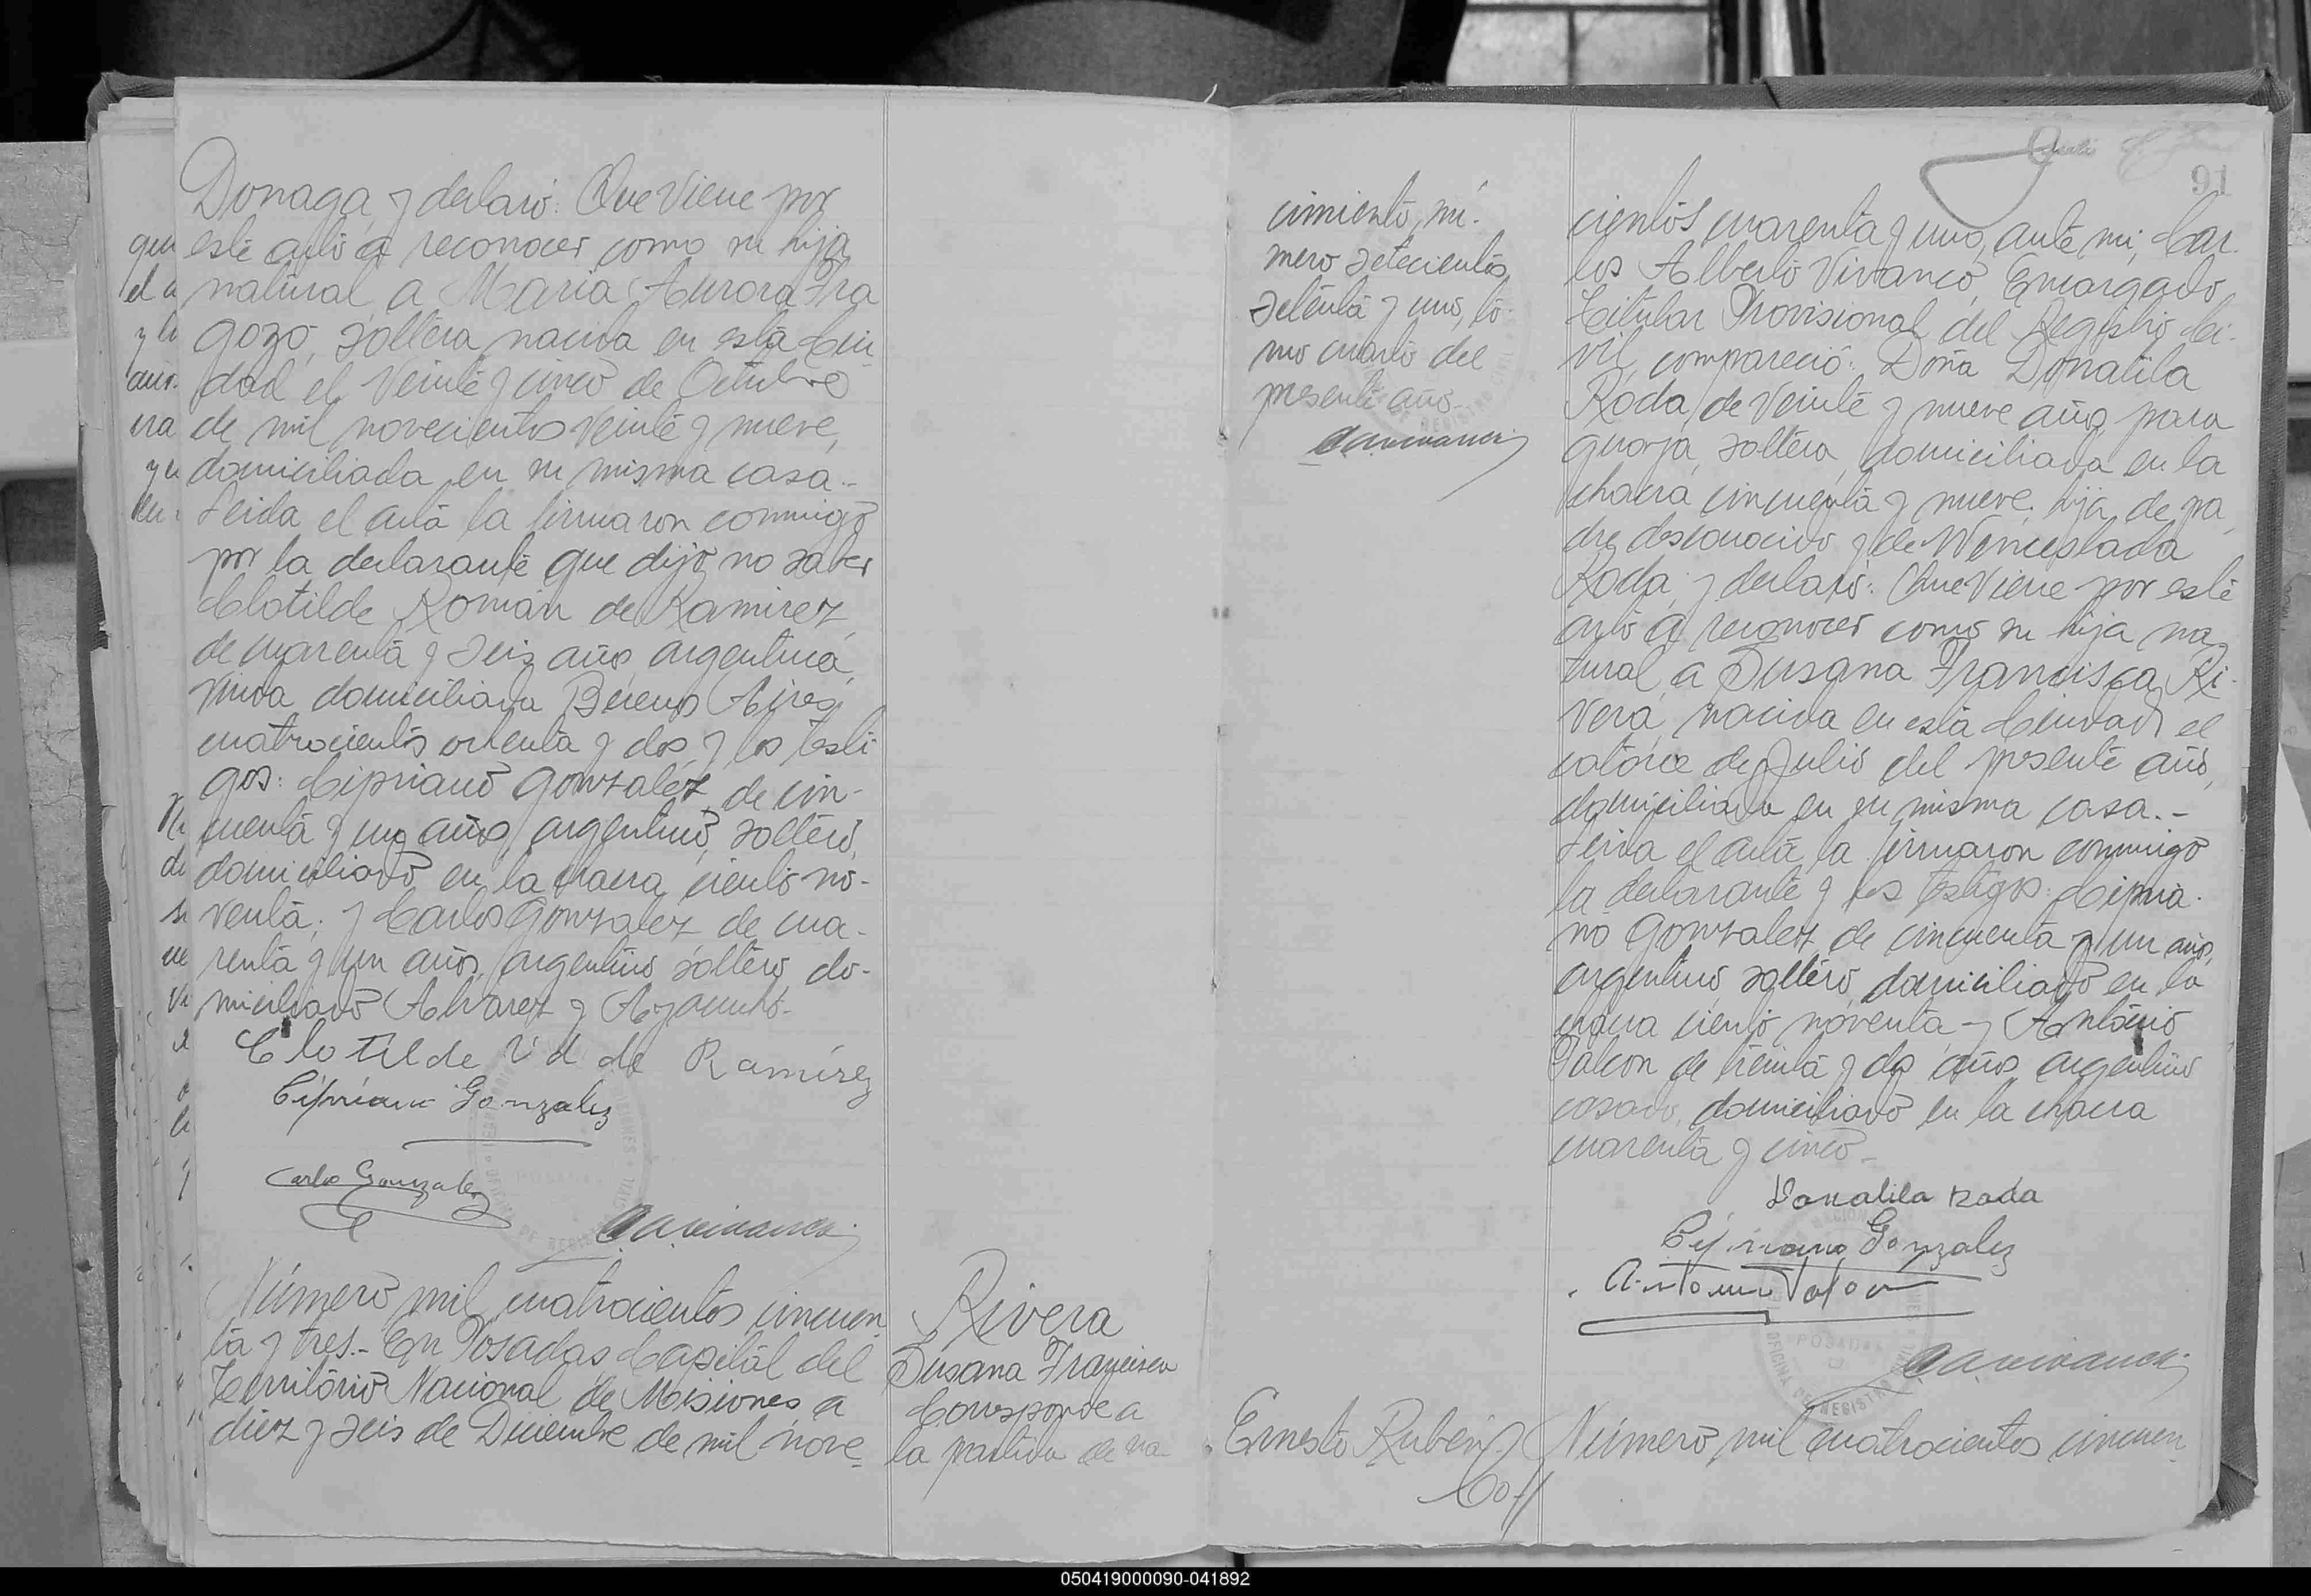 Donaga, y declaró: Que viene por
este acto a reconocer como su hija
natural a Maria Aurora Fra
gozo, soltera, nacida en esta Ciu
dad el veinte y cinco de Octubre
de mil novecientos veinte y nueve,
domiciliada en su misma casa.-
Leida el acta la firmaron conmigo
por la declarante que dijo no saber
Clotilde Román de Ramirez,
de cuarenta y seis años, argentina,
viuda domiciliada Buenos Aires
cuatrocientos ochenta y dos y los testi
gos: Cipriano Gonzalez, de cin-
cuenta y un años, argentino, soltero,
domiciliado en la chacra ciento no-
venta; y Carlos Gonzalez de cua-
renta y un años, argentino soltero, do-
miciliado Alvarez y Ayacucho.-
Clotilde Vd de Ramírez
Cipriano Gonzalez
Carlos Gonzalez
Número mil cuatrocientos cincuen
ta y tres.- En Posadas, Capital del
Territorio Nacional de Misiones a
diez y seis de Diciembre de mil nove
Rivera
Susana Francisca
Corresponde a
la partida de na
cimiento, nú-
mero setecientos
setenta y uno, to-
mo cuarto del
presente año.-
91
cientos cuarenta y uno, ante mi, Car
los Alberto Vivanco, Encargado
Titular Provisional del Registro Ci-
vil, compareció: Doña Donatila
Roda, de veinte y nueve años, para
guaya, soltera, domiciliada en la
chacra cincuenta y nueve, hija de pa
dre desconocido y de Wenceslada
Roda; y declaró: Que viene por este
acto a reconocer como su hija na
tural a Susana Francisca Ri-
vera, nacida en esta Ciudad el
catorce de Julio del presente año,
domiciliada en su misma casa.-
Leida el acta la firmaron conmigo
la declarante y los testigos: Cipria-
no Gonzalez, de cincuenta y un años,
argentino, soltero, domiciliado en la
chacra ciento noventa y Antonio
Falcon de treinta y dos años, argentino
casado, domiciliado en la chacra
cuarenta y cinco.-
Donatila Roda
Cipriano Gonzalez
Antonio Falcon
POSADAS
Ernesto Ruben
Número mil cuatrocientos cincuen
050419000090-041892